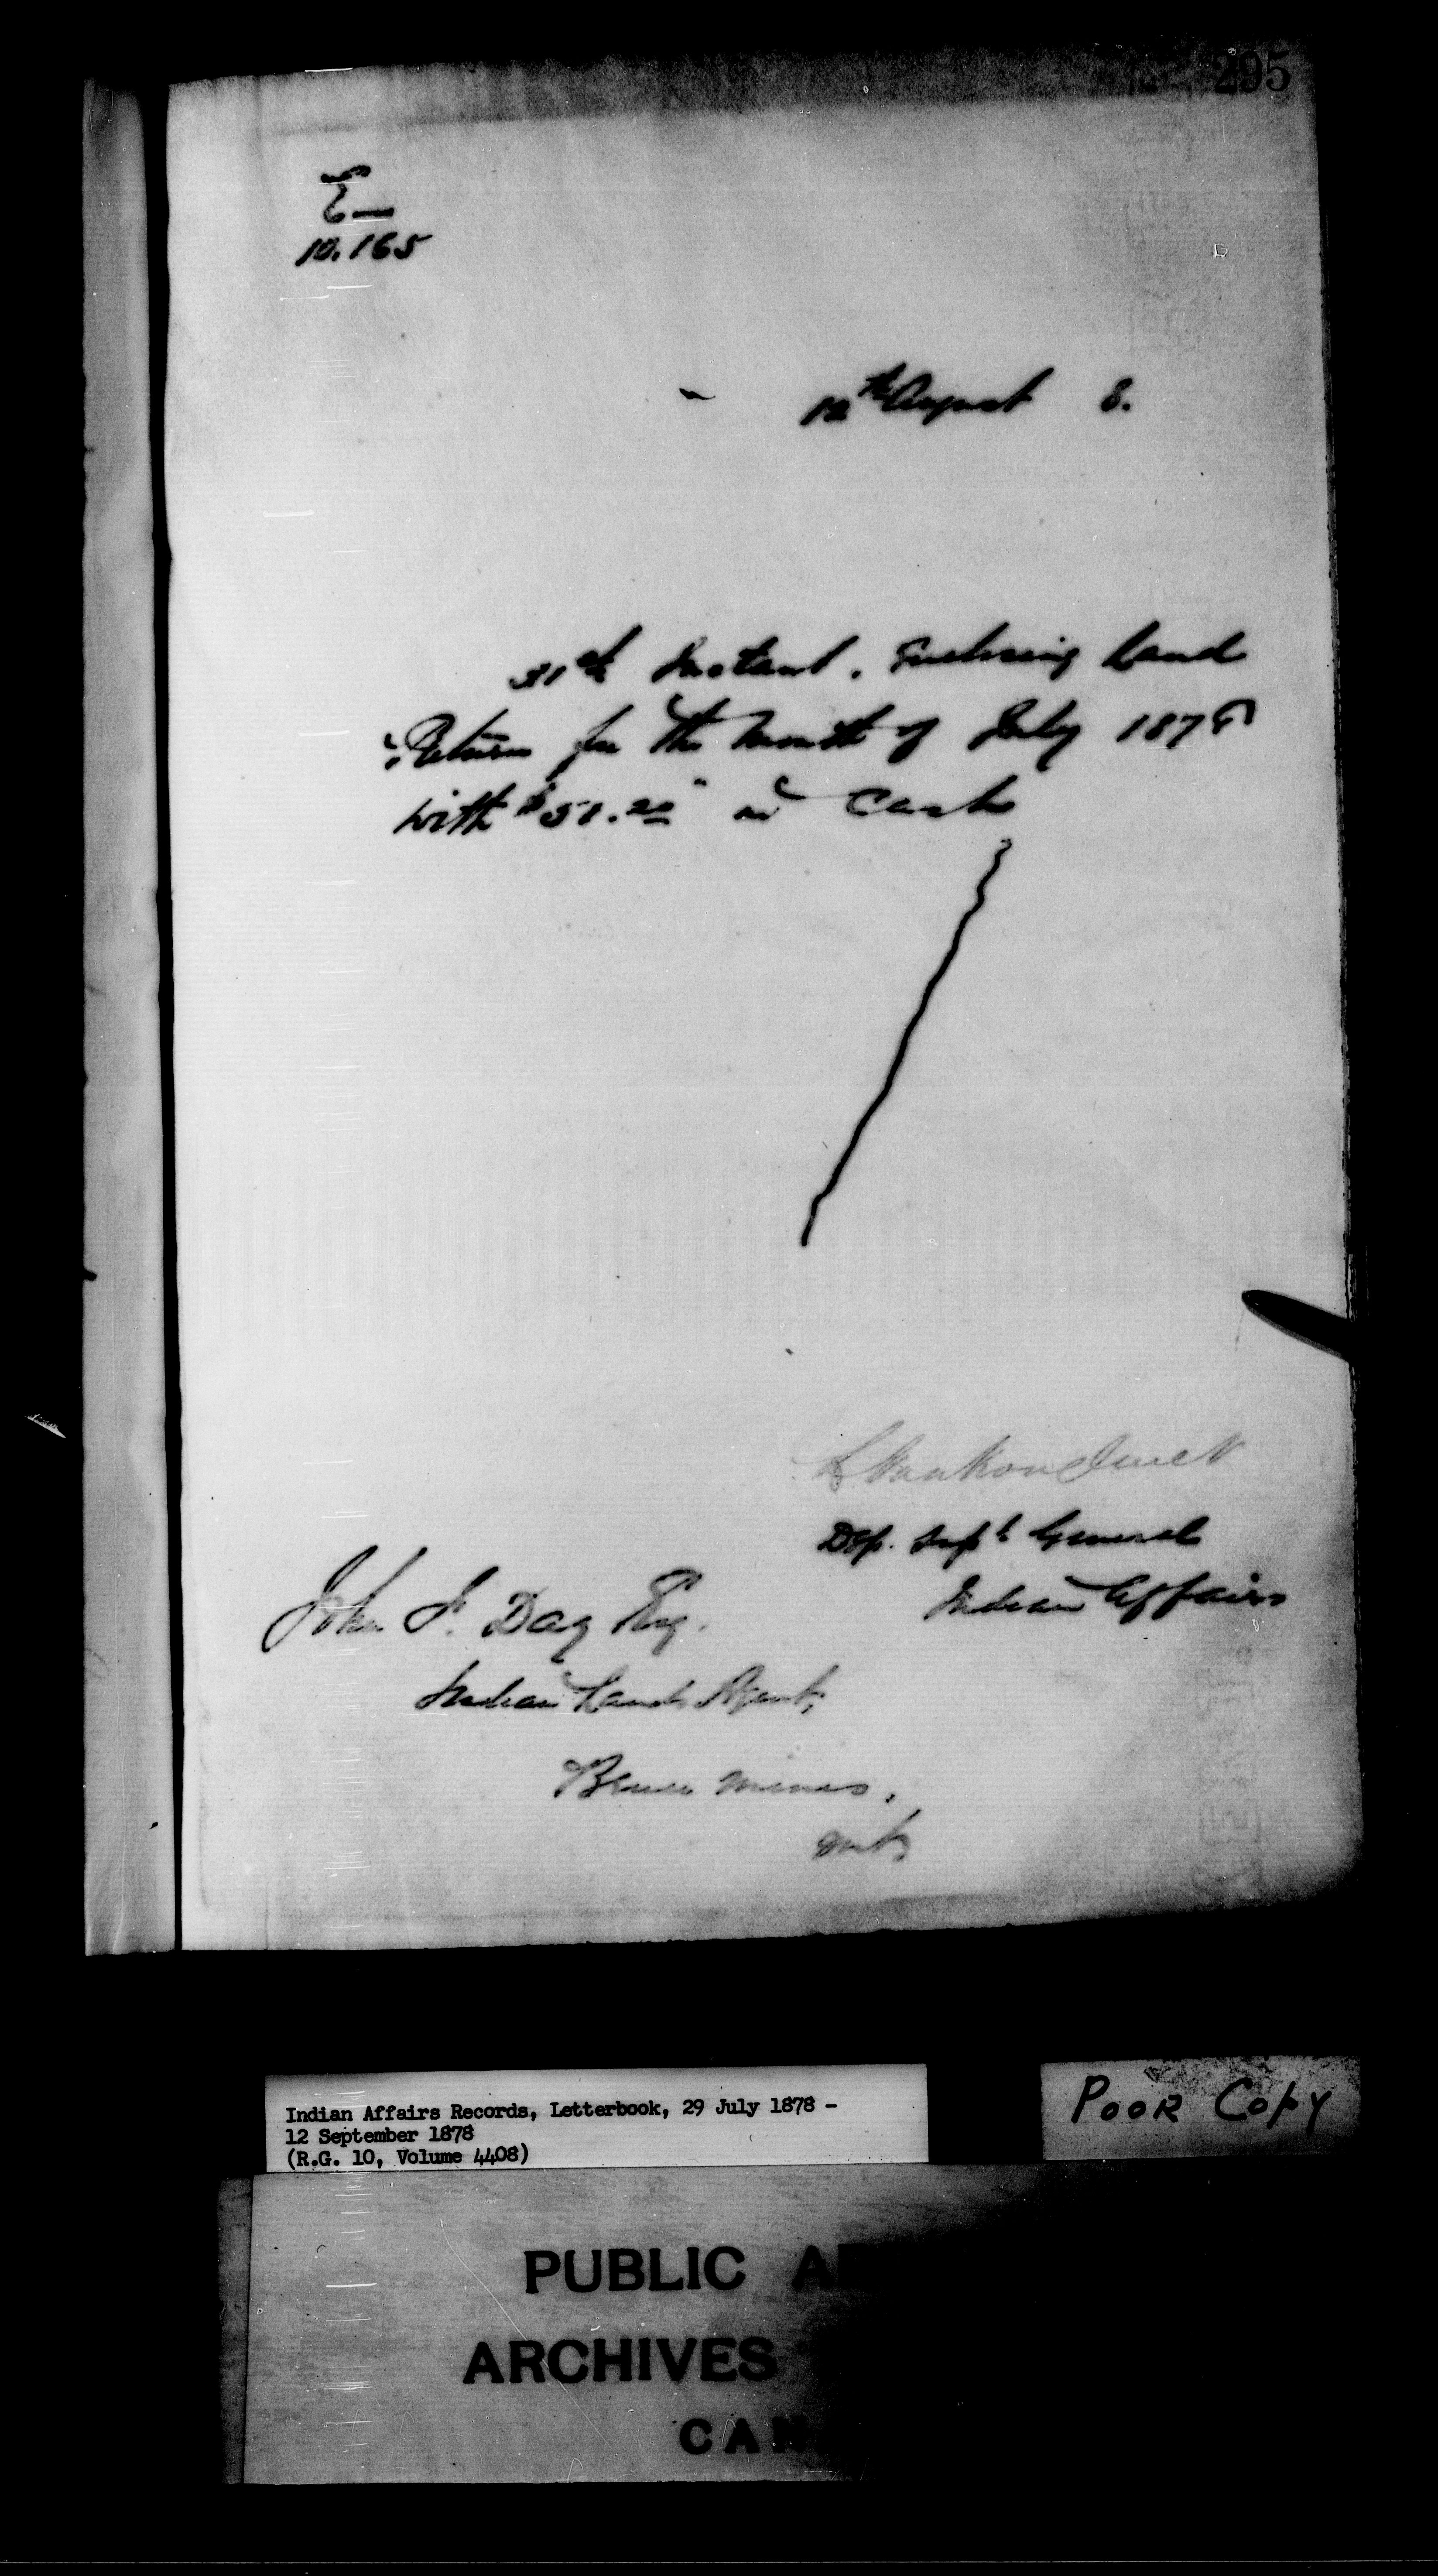 295
E
10.165
12th August 8.
31st Instant, Enclosing Land
Return for the Month of July 1878
with $51.20 in Cash
L Vankoughnet
Dep. Supt General
Indian Affairs
John F. Day Esq.
Indian Lands Agent,
Bruce Mines,
Ont.
Indian Affairs Records, Letterbook, 29 July 1878 -
12 September 1878
(R.G. 10, Volume 4408)
POOR COPY
PUBLIC A
ARCHIVES
CAN